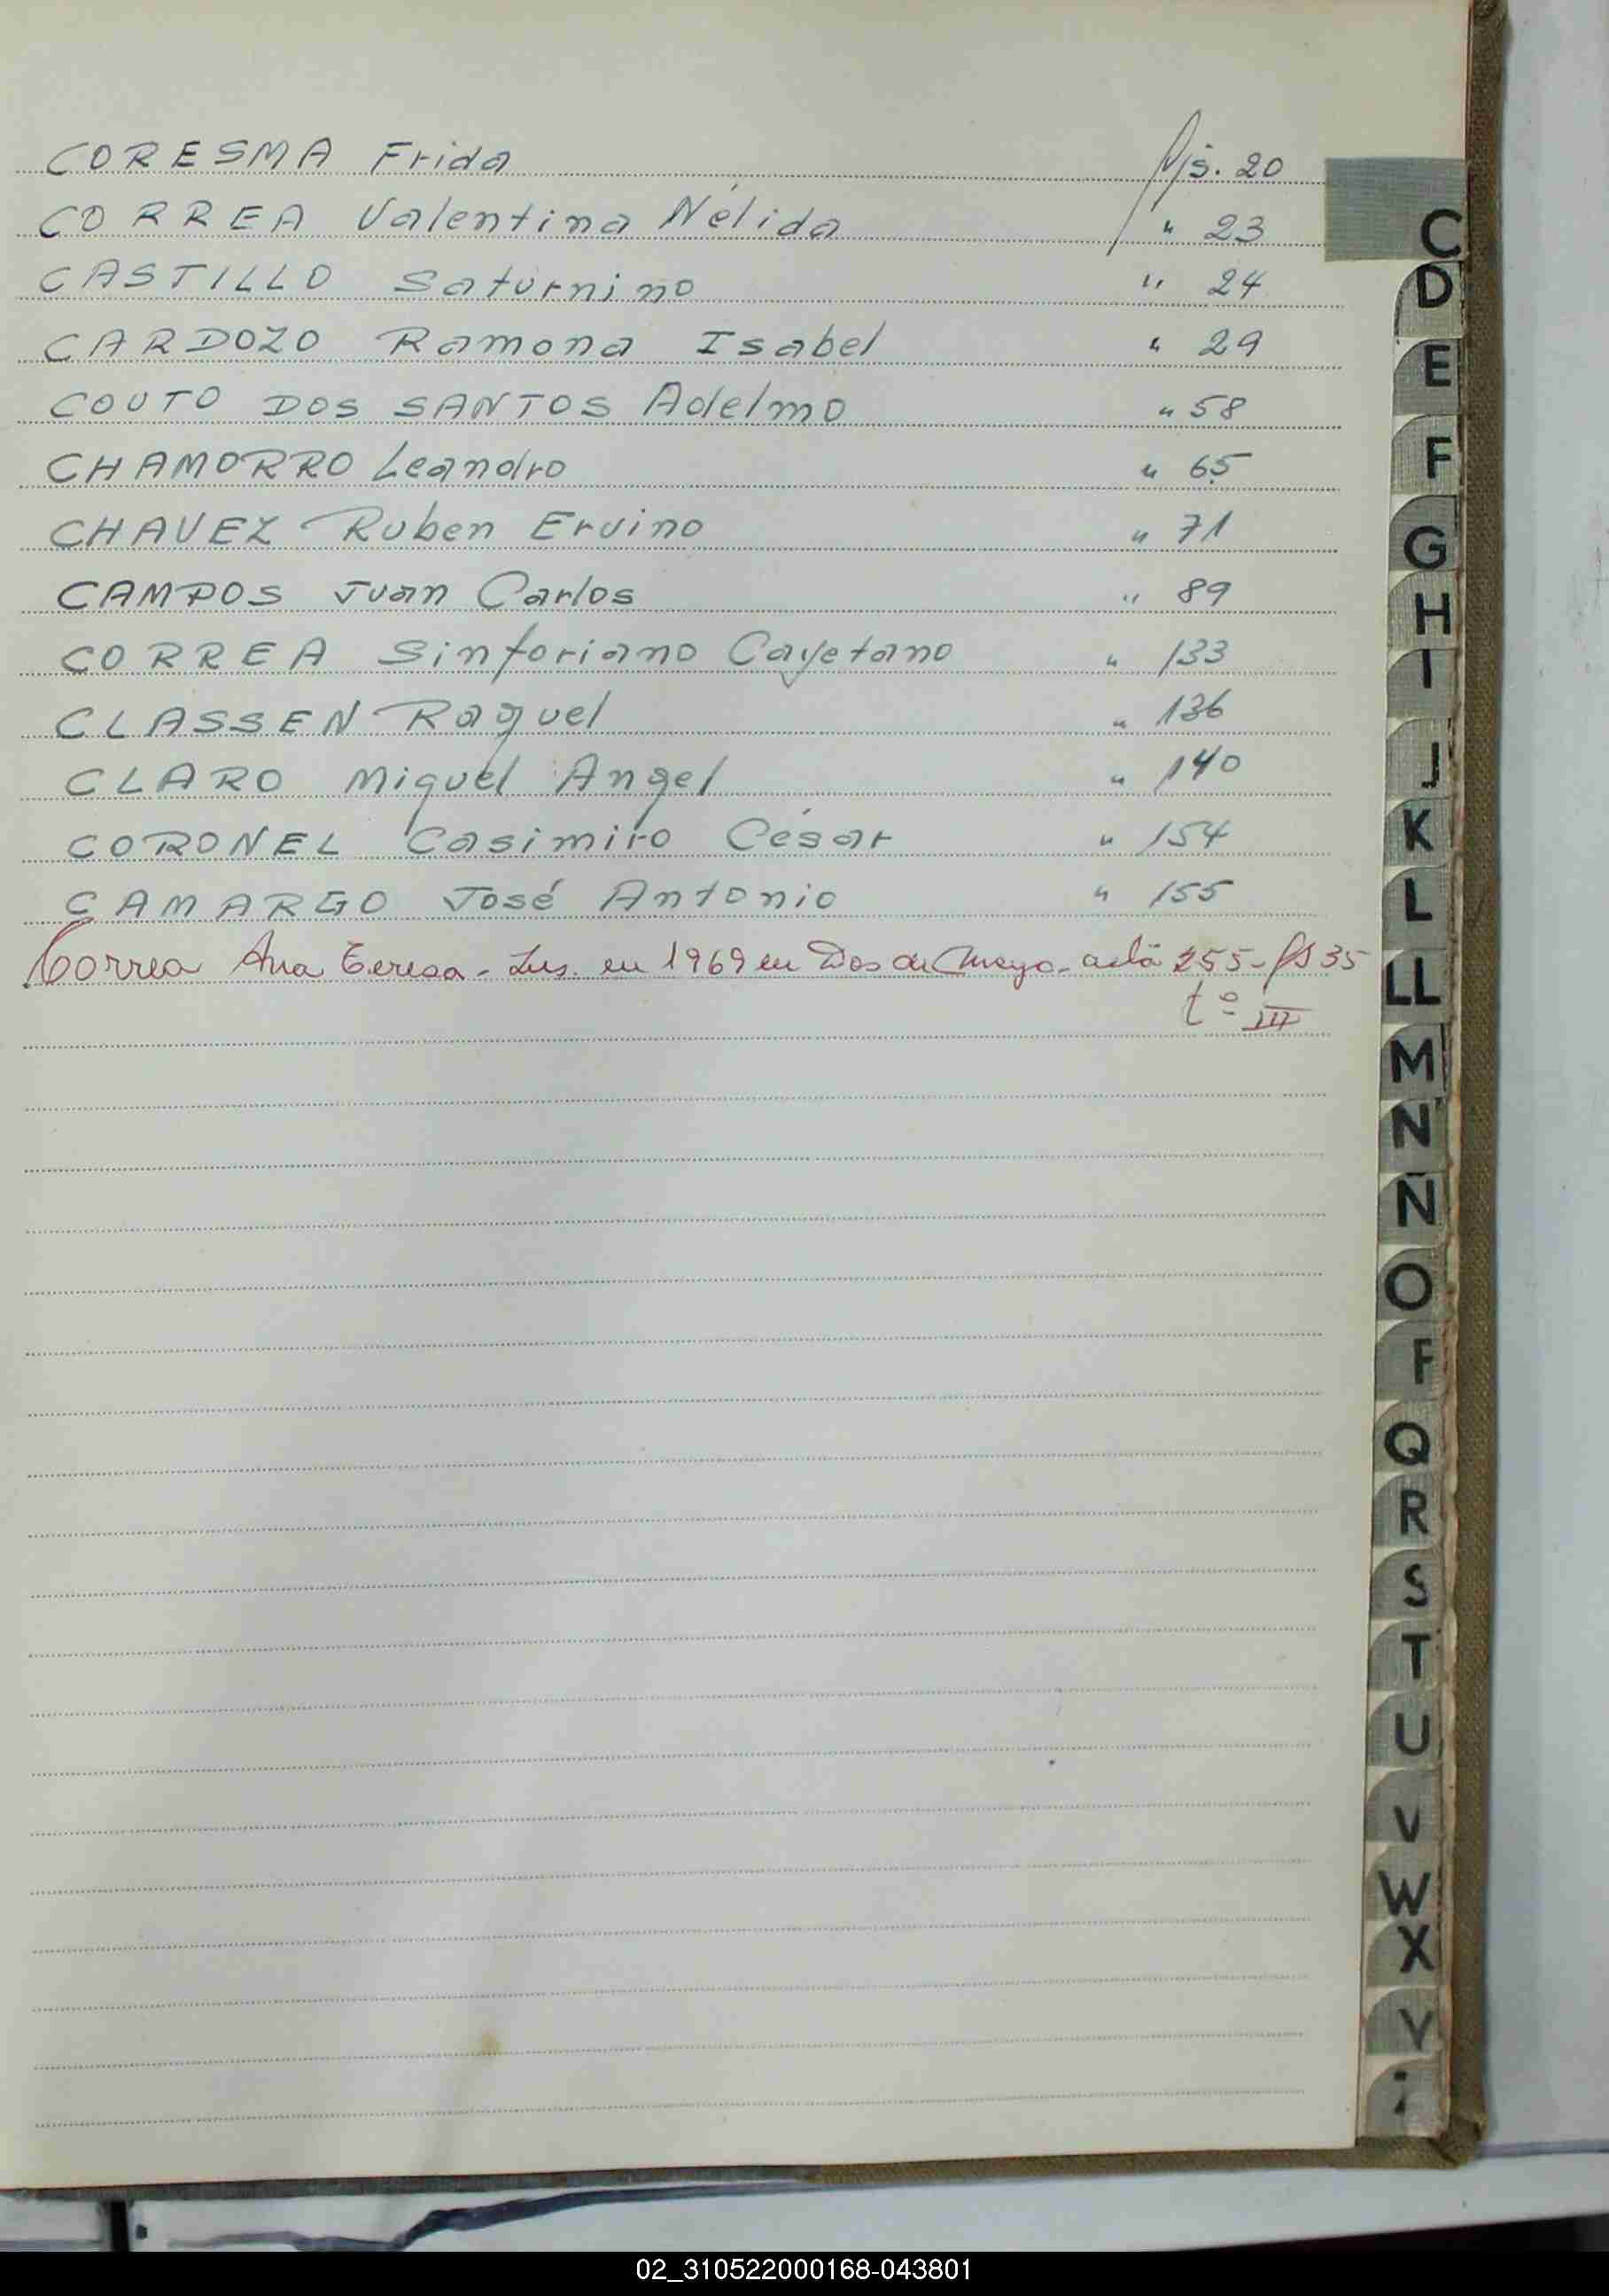 CORESMA Frida fjs. 20
CORREA Valentina Nélida " 23
CASTILLO Saturnino " 24
CARDOZO Ramona Isabel " 29
COUTO DOS SANTOS Adelmo " 58
CHAMORRO Leandro " 65
CHAVEZ Ruben Ervino " 71
CAMPOS Juan Carlos " 89
CORREA Sinforiano Cayetano " 133
CLASSEN Raquel " 136
CLARO Miguel Angel " 140
CORONEL Casimiro César " 154
CAMARGO José Antonio " 155
Correa Ana Teresa - Ins. en 1969 en Dos de Mayo - acta 255 - fs 35
tº III
C
D
E
F
G
H
I
J
K
L
LL
M
N
Ñ
O
P
Q
R
S
T
U
V
W
X
Y
02_310522000168-043801